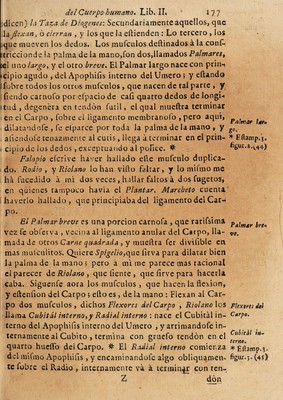 del Cuerpo humano. Lib. II. 177
dicen) la Taza de Diogenes: Secundariamente aquellos, que
la flexan, ò cierran, y los que la estienden: Lo tercero, los
que mueven los dedos. Los musculos destinados à la cons-
triccion de la palma de la mano, son dos, llamados Palmares,
el uno largo, y el otro breve. El Palmar largo nace con prin-
cipio agudo, del Apophisis interno del Umero: y estando
sobre todos los otros musculos, que nacen de tal parte, y
siendo carnoso por espacio de casi quatro dedos de longi-
tud, degenèra en tendòn sutil, el qual muestra terminar
en el Carpo, sobre el ligamento membranoso, pero aqui,
dilatandose, se esparce por toda la palma de la mano, y
asiendose tenazmente al cutis, llega à terminar en el prin-
cipio de los dedos, exceptuando al police. *
Palmar lar-
go.
* Estamp. 1.
figur. 2. (44)
Falopio escrive haver hallado este musculo duplica-
do. Rodio, y Riolano lo han visto faltar, y lo mismo me
hà sucedido à mì dos veces, hallar faltos à dos sugetos,
en quienes tampoco havia el Plantar. Marcheto cuenta
haverlo hallado, que principiaba del ligamento del Car-
po.
El Palmar breve es una porcion carnosa, que rarisima
vez se observa, vecina al ligamento anular del Carpo, lla-
mada de otros Carne quadrada, y muestra ser divisible en
mas musculitos. Quiere Spigelio, que sirva para dilatar bien
la palma de la mano; pero à mì me parece mas racional
el parecer de Riolano, que siente, que sirve para hacerla
caba. Siguense aora los musculos, que hacen la flexion,
y estension del Carpo; esto es, de la mano: Flexan al Car-
po dos musculos, dichos Flexores del Carpo, Riolano los
llama Cubitàl interno, y Radial interno: nace el Cubitàl in-
terno del Apophisis interno del Umero, y arrimandose in-
ternamente al Cubito, termina con grueso tendòn en el
quarto huesso del Carpo. * El Radial interno comienza
del mismo Apophisis, y encaminandose algo obliquamen-
te sobre el Radio, internamente và à terminar con ten-
Palmar bre-
ve.
Flexores del
Carpo.
Cubitàl in-
terno.
* Estamp. 3.
figur. 3. (45)
Z dòn